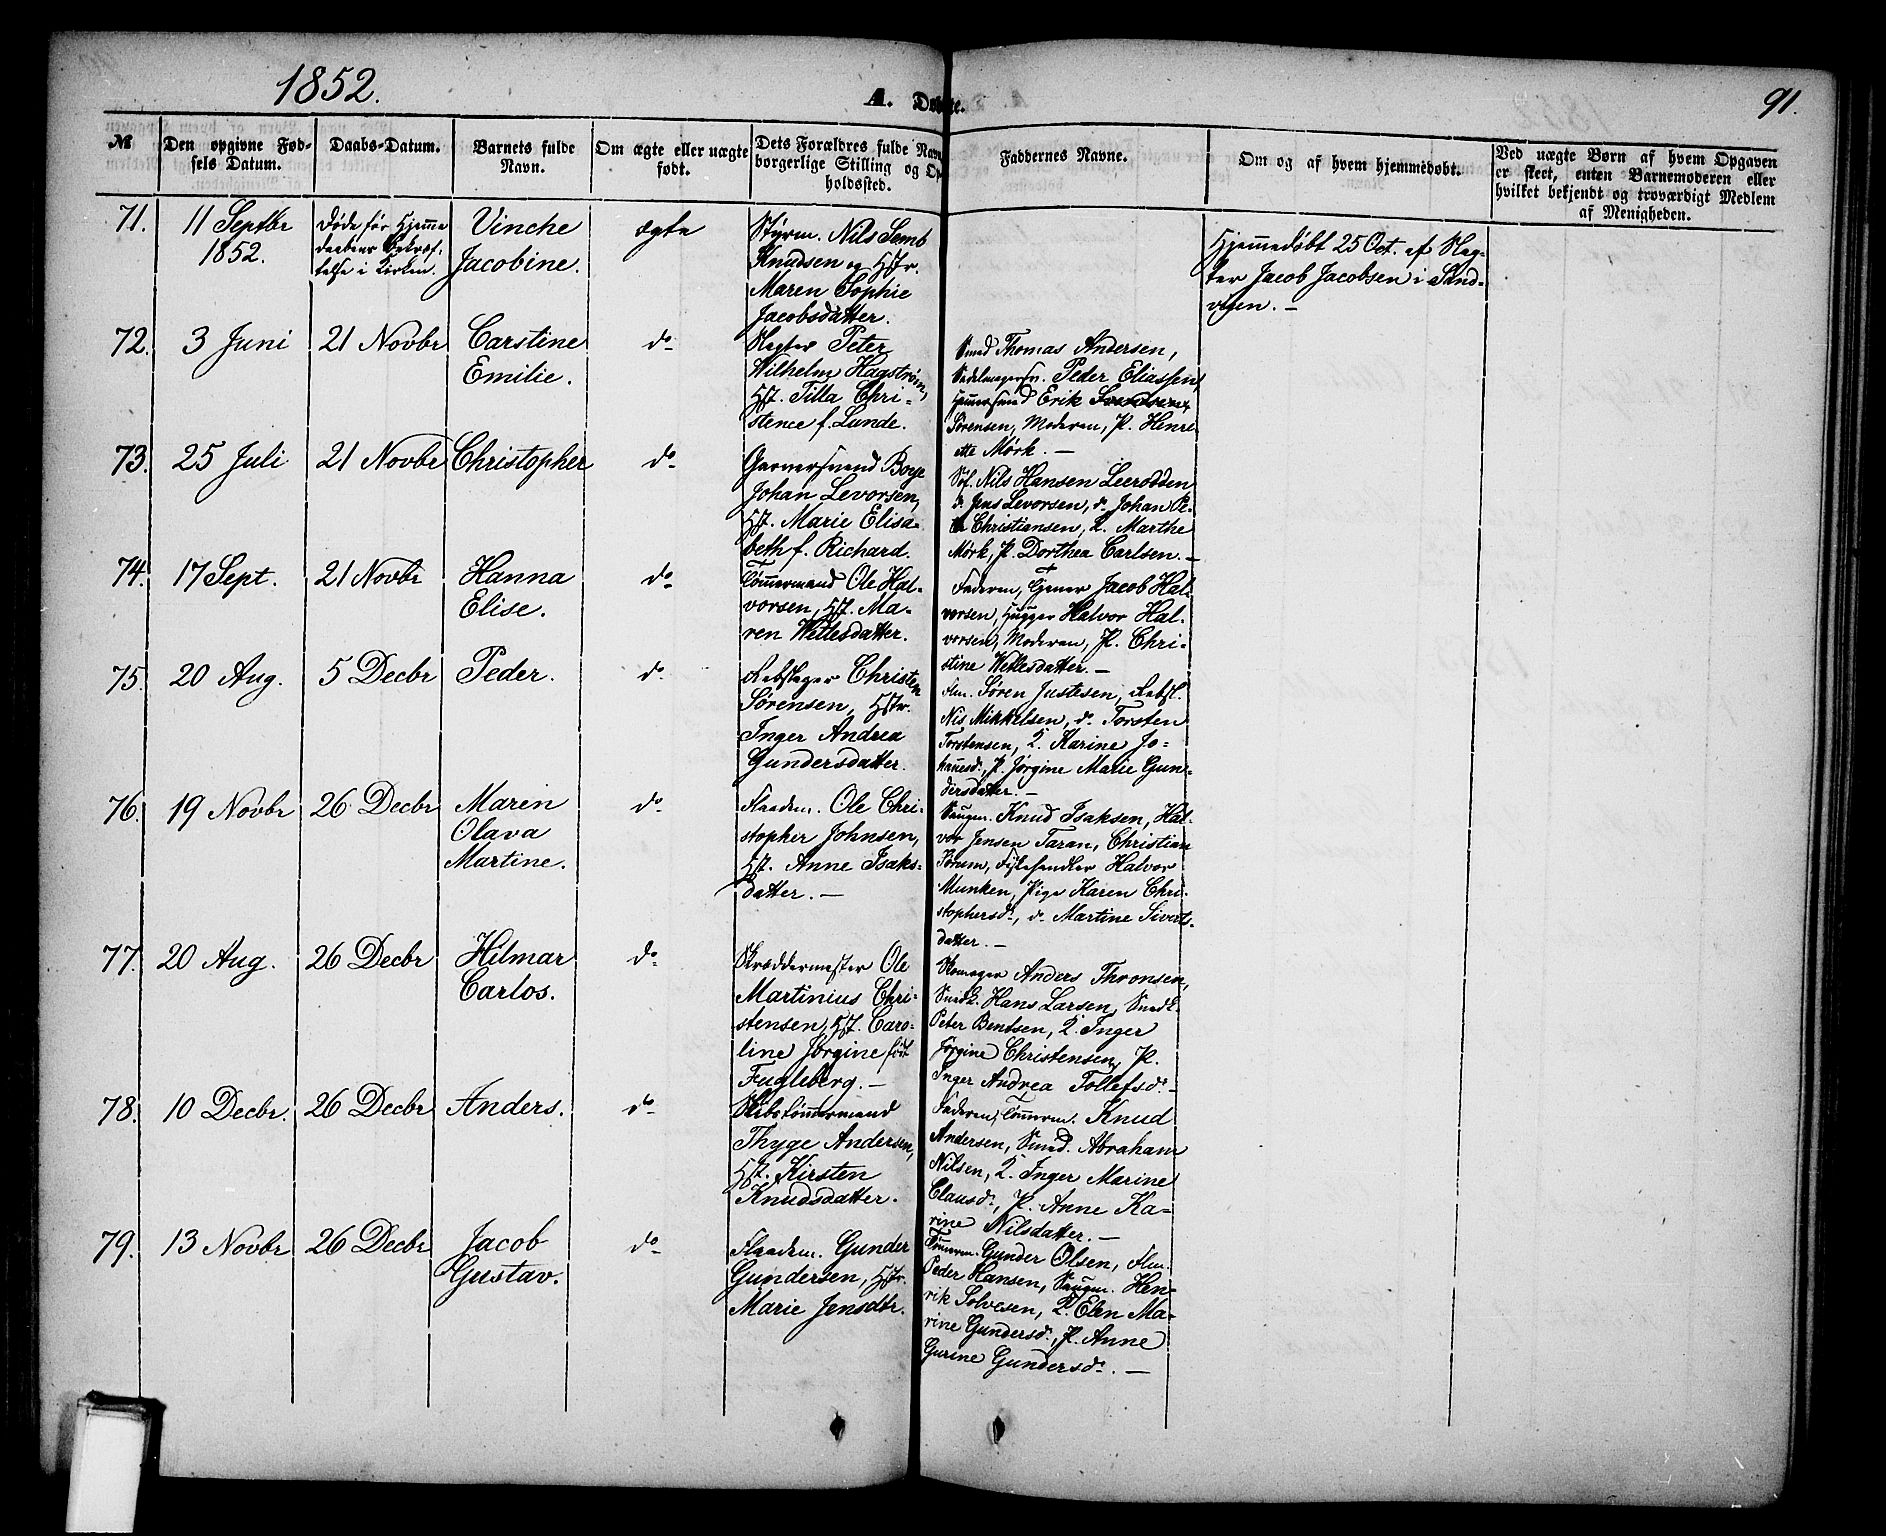 1852.
A. Døbte.
91.
№
Den opgivne Fød-
sels Datum.
Daabs-Datum.
Barnets fulde
Navn.
Om ægte eller uægte
født.
Dets Forældres fulde Navn,
borgerlige Stilling og Op-
holdssted.
Faddernes Navne.
Om og af hvem hjemmedøbt.
Ved uægte Børn af hvem Opgaven
er skeet, enten Barnemoderen eller
hvilket bekjendt og troværdigt Medlem
af Menigheden.
71.
11 Septbr
1852.
Døde før Hjemme
daabens Bekræf-
telse i Kirken.
Vinche
Jacobine.
ægte
Styrm. Nils Semb
Knudsen og Hstr.
Maren Sophie
Jacobsdatter.
Hjemmedøbt 25 Oct. af Slag-
ter Jacob Jacobsen i Sand-
vigen. —
72.
3 Juni
21 Novbr
Carstine
Emilie.
do
Slagter Peter
Wilhelm Hagstrøm,
Hst. Tilla Chri-
stence f. Lunde.
Smed Thomas Andersen,
Sadelmagersv. Peder Eliassen,
Erik
Sørensen, Moderen, P. Henri-
ette Mørk. —
73.
25 Juli
21 Novbr
Christopher
do
Garversvend Boye
Johan Levorsen,
Hst. Marie Elisa-
beth f. Richard.
Søf. Nils Hansen Leerodden
do Jens Levorsen, do Johan Pe-
ter Christiansen, K. Marthe
Mørk, P. Dorthea Carlsen. —
74.
17 Sept.
21 Novbr
Hanna
Elise.
do
Tømmermand Ole Hal-
vorsen, Hst. Ma-
ren Wetlesdatter.
Faderen, Jacob Hal-
vorsen, Hugger Halvor Hal-
vorsen, Moderen, P. Chri-
stine Wetlesdatter. —
75.
20 Aug.
5 Decbr
Peder.
do
Rebslager Christen
Sørensen, Hstr.
Inger Andrea
Gundersdatter.
Flm. Søren Justesen, Rebsl.
Nis Mikkelsen, do Torsten
Torstensen, K. Karine Jo-
hanesd., P. Jørgine Marie Gun-
dersdatter. —
76.
19 Novbr
26 Decbr
Maren
Olava
Martine.
do
Flaadem. Ole Chri-
stopher Johnsen,
Hst. Anne Isaks-
datter. —
Saugm. Knud Isaksen, Hal-
vor Jensen Taran, Christian
Borum, Fiskehandler Halvor
Munken, Pige Karen Chri-
stophersd., do Martine Siverts-
datter. —
77.
20 Aug.
26 Decbr
Hilmar
Carlos.
do
Skreddermester Ole
Martinius Chri-
stensen, Hst. Caro-
line Jørgine født
Fugleberg. —
Skomager Anders Thronsen,
Snedk. Hans Larsen, Snedk.
Peter Bentsen, K. Inger
Jørgine Christensen, P.
Inger Andrea Tollefsd. —
78.
10 Decbr.
26 Decbr
Anders.
do
Skibstømmermand
Thyge Andersen,
Hst. Kirsten
Knudsdatter.
Faderen, Tømmerm. Knud
Andersen, Smed. Abraham
Nilsen, K. Inger Marine
Clausd., P. Anne Ka-
rine Nilsdatter. —
79.
13 Novbr
26 Decbr
Jacob
Gustav.
do
Flaadem. Gunder
Gundersen, Hstr.
Marie Jensdtr.
Tømmerm. Gunder Olsen, Flm.
Peder Hansen, Saugm. Hen-
rik Solvesen, K. Elen Ma-
rine Gundersd., P. Anne
Gurine Gundersd. —